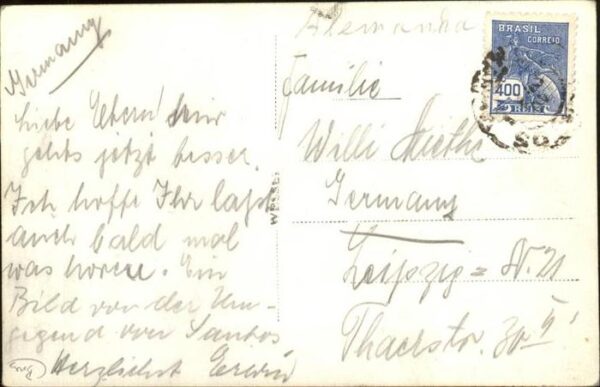 Germany
Liebe Eltern! Mir
gehts jetzt besser.
Ich hoffe Ihr laßt
auch bald mal
was hören. Ein
Bild von der Um-
gegend von Santos
Herzlichst Erwin
WESSEL
Alemanha
BRASIL
CORREIO
400
REIS
SANTOS
Familie
Willi
Germany
Leipzig = N. 21
Thaerstr. 30 II